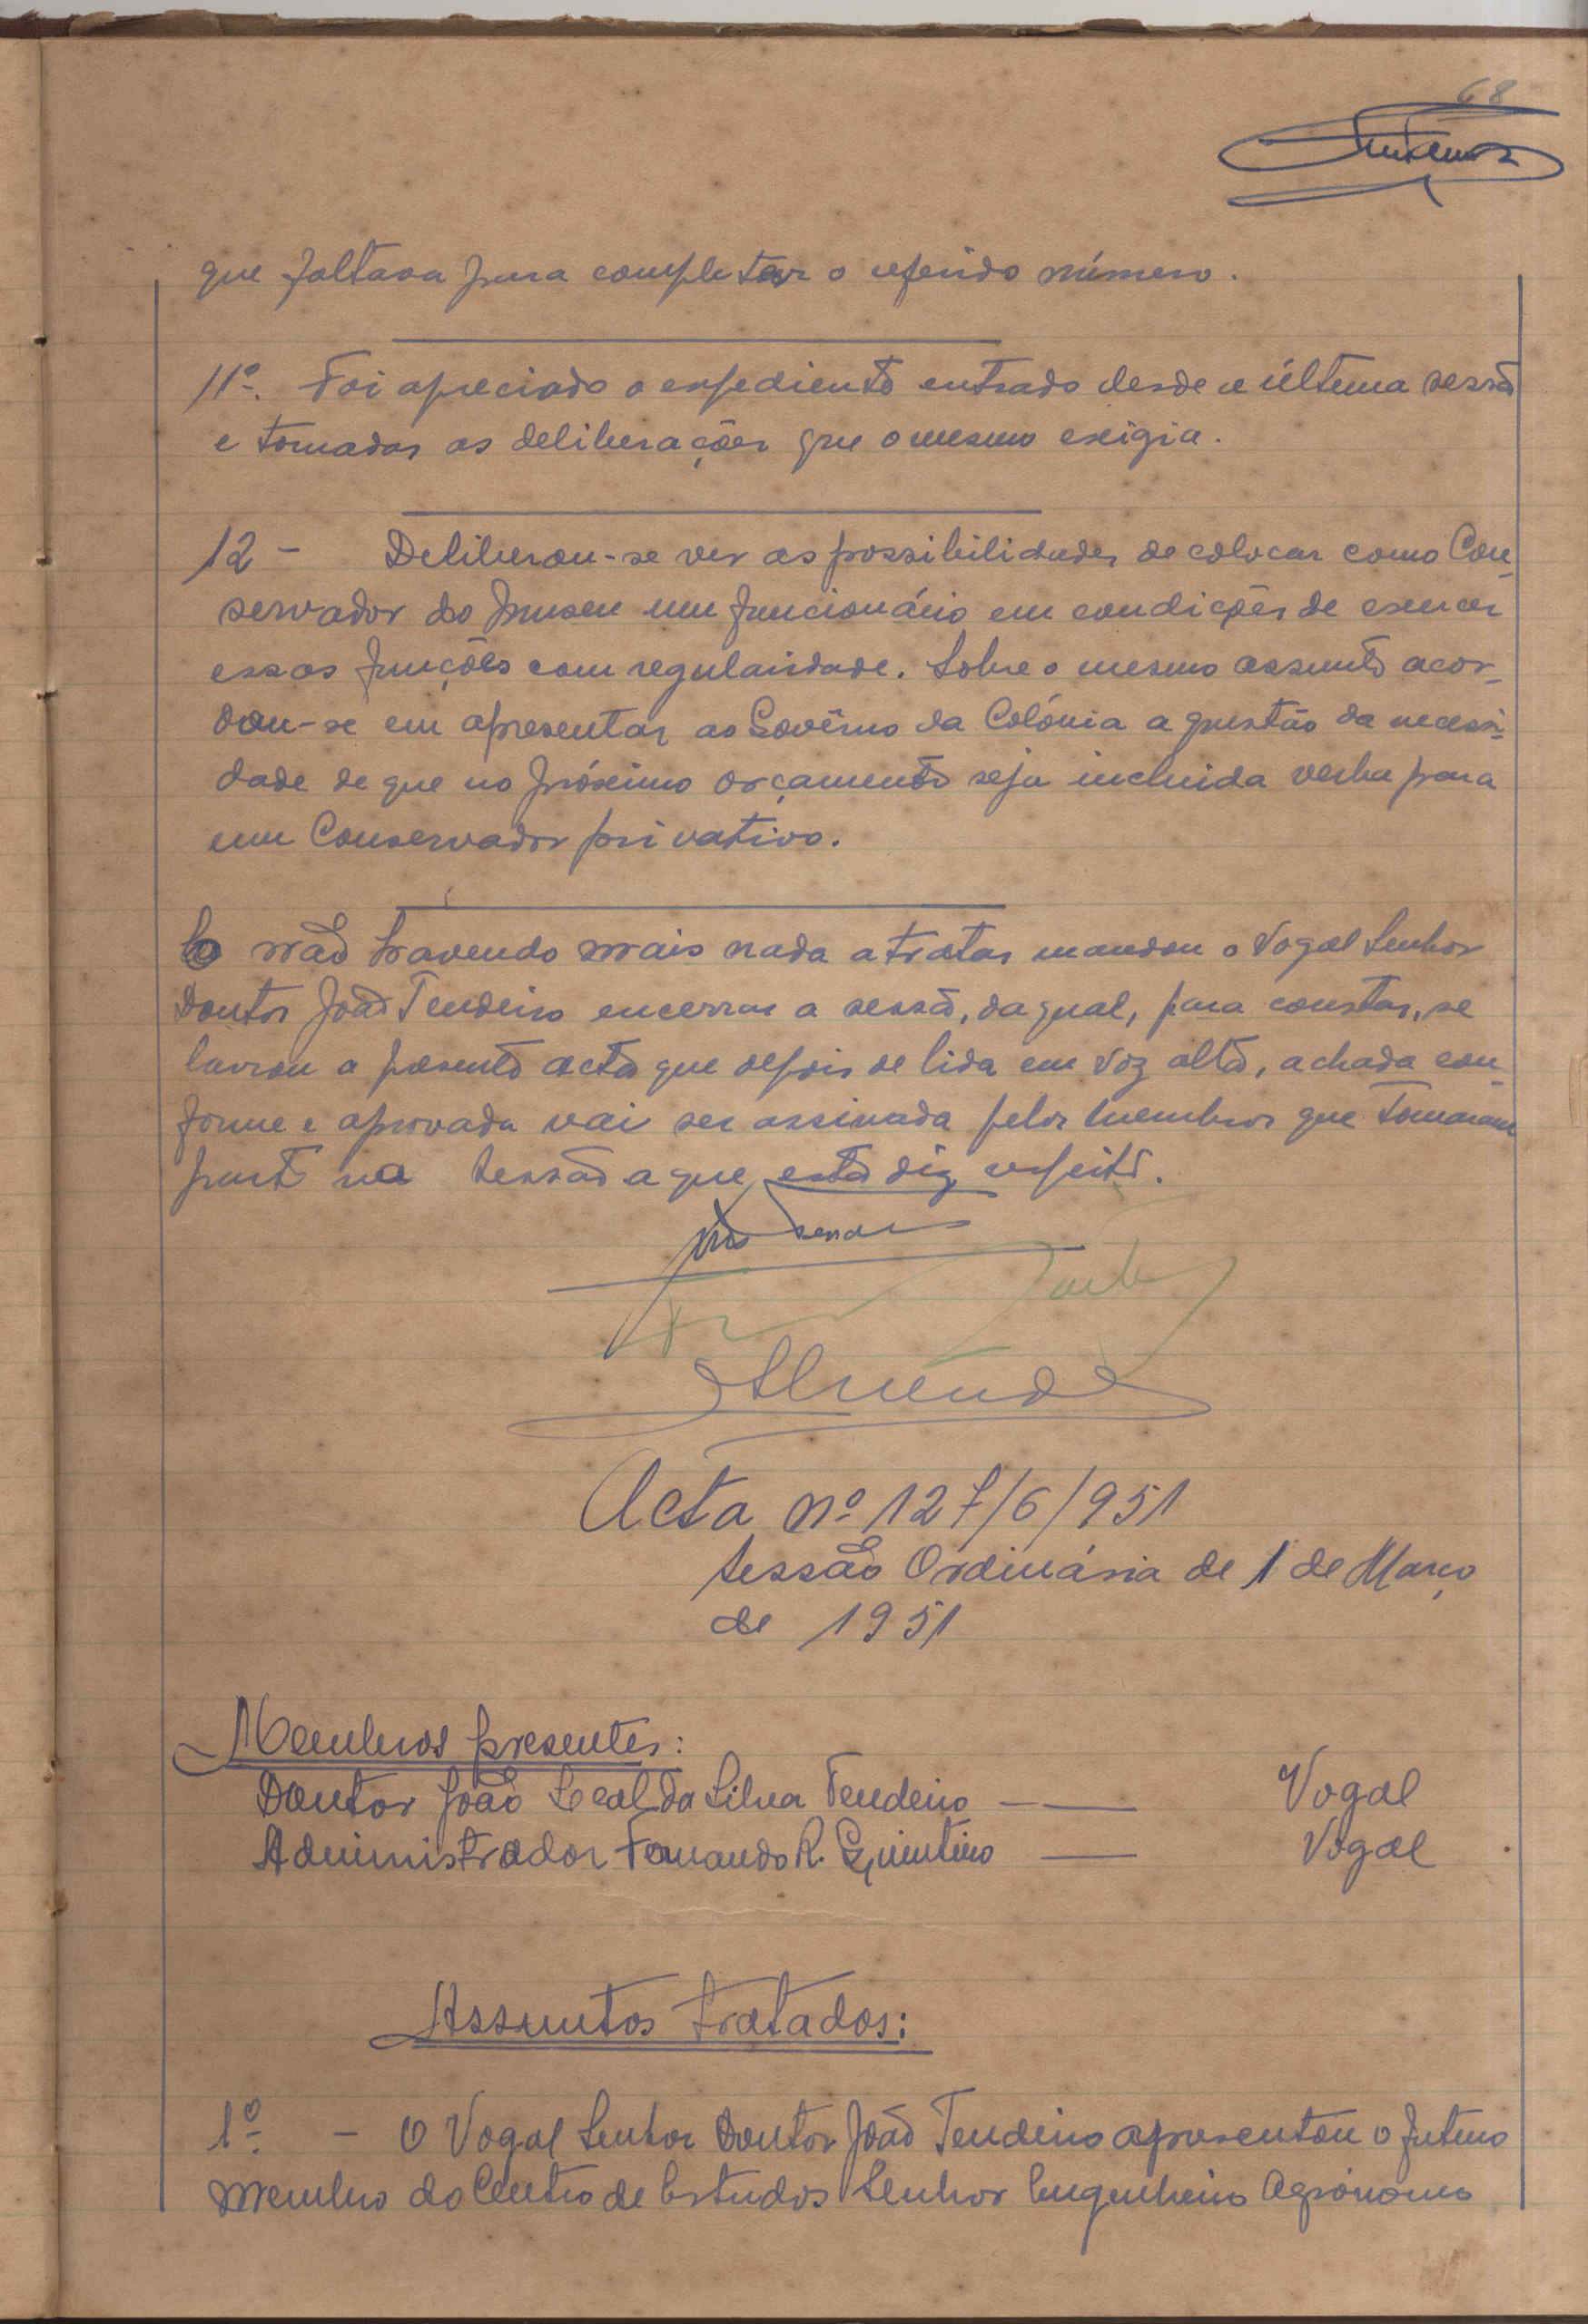 68
que faltava para completar o referido número.
11º. Foi apreciado o expediente entrado desde a última sessão
e tomadas as deliberações que o mesmo exigia.
12 - Deliberou-se ver as possibilidades de colocar como Con-
servador do Museu um funcionário em condições de exercer
essas funções com regularidade. Sobre o mesmo assunto acor-
dou-se em apresentar ao Govêrno da Colónia a questão da necessi-
dade de que no próximo orçamento seja incluida verba para
um Conservador privativo.
E não havendo mais nada a tratar mandou o Vogal Senhor
Doutor João Tendeiro encerrar a sessão, da qual, para constar, se
lavrou a presente acta que depois de lida em voz alta, achada con-
forme e aprovada vai ser assinada pelos membros que tomaram
parte na sessão a que esta diz respeito.
Acta nº 127/6/951
Sessão Ordinária de 1 de Março
de 1951
Membros presentes:
Doutor João Leal da Silva Tendeiro — — Vogal
Administrador Fernando R. Quintino — Vogal
Assuntos tratados:
1º - O Vogal Senhor Doutor João Tendeiro apresentou o futuro
membro do Centro de Estudos Senhor Engenheiro Agrónomo